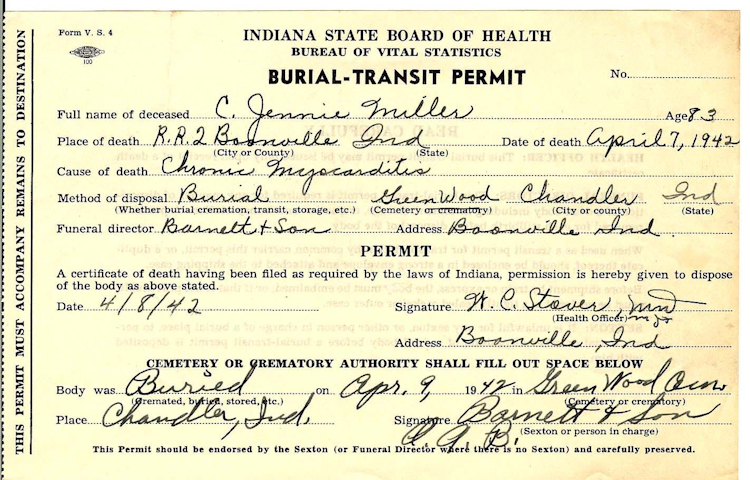 Form V. S. 4
100
INDIANA STATE BOARD OF HEALTH
BUREAU OF VITAL STATISTICS
BURIAL-TRANSIT PERMIT
No.
Full name of deceased C. Jennie Miller Age 83
Place of death R.R.2 Boonville Ind Date of death April 7, 1942
(City or County) (State)
Cause of death Chronic Myocarditis
Method of disposal Burial Green Wood Chandler Ind
(Whether burial cremation, transit, storage, etc.) (Cemetery or crematory) (City or county) (State)
Funeral director Barnett & Son Address Boonville Ind.
PERMIT
A certificate of death having been filed as required by the laws of Indiana, permission is hereby given to dispose
of the body as above stated.
Date 4/8/42 Signature W. C. Stover, MD
(Health Officer)
Address Boonville, Ind
CEMETERY OR CREMATORY AUTHORITY SHALL FILL OUT SPACE BELOW
Body was Buried on Apr. 9, 1942 in Green Wood Cem
(Cremated, buried, stored, etc.) (Cemetery or crematory)
Place Chandler, Ind. Signature Barnett & Son
(Sexton or person in charge)
C. A. B.
This Permit should be endorsed by the Sexton (or Funeral Director where there is no Sexton) and carefully preserved.
THIS PERMIT MUST ACCOMPANY REMAINS TO DESTINATION